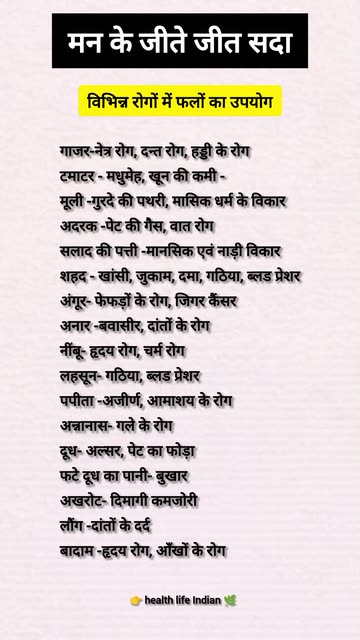 मन के जीते जीत सदा
विभिन्न रोगों में फलों का उपयोग
गाजर-नेत्र रोग, दन्त रोग, हड्डी के रोग
टमाटर - मधुमेह, खून की कमी -
मूली -गुरदे की पथरी, मासिक धर्म के विकार
अदरक -पेट की गैस, वात रोग
सलाद की पत्ती -मानसिक एवं नाड़ी विकार
शहद - खांसी, जुकाम, दमा, गठिया, ब्लड प्रेशर
अंगूर- फेफड़ों के रोग, जिगर कैंसर
अनार -बवासीर, दांतों के रोग
नींबू- हृदय रोग, चर्म रोग
लहसून- गठिया, ब्लड प्रेशर
पपीता -अजीर्ण, आमाशय के रोग
अन्नानास- गले के रोग
दूध- अल्सर, पेट का फोड़ा
फटे दूध का पानी- बुखार
अखरोट- दिमागी कमजोरी
लौंग -दांतों के दर्द
बादाम -हृदय रोग, आँखों के रोग
👉 health life Indian 🌿